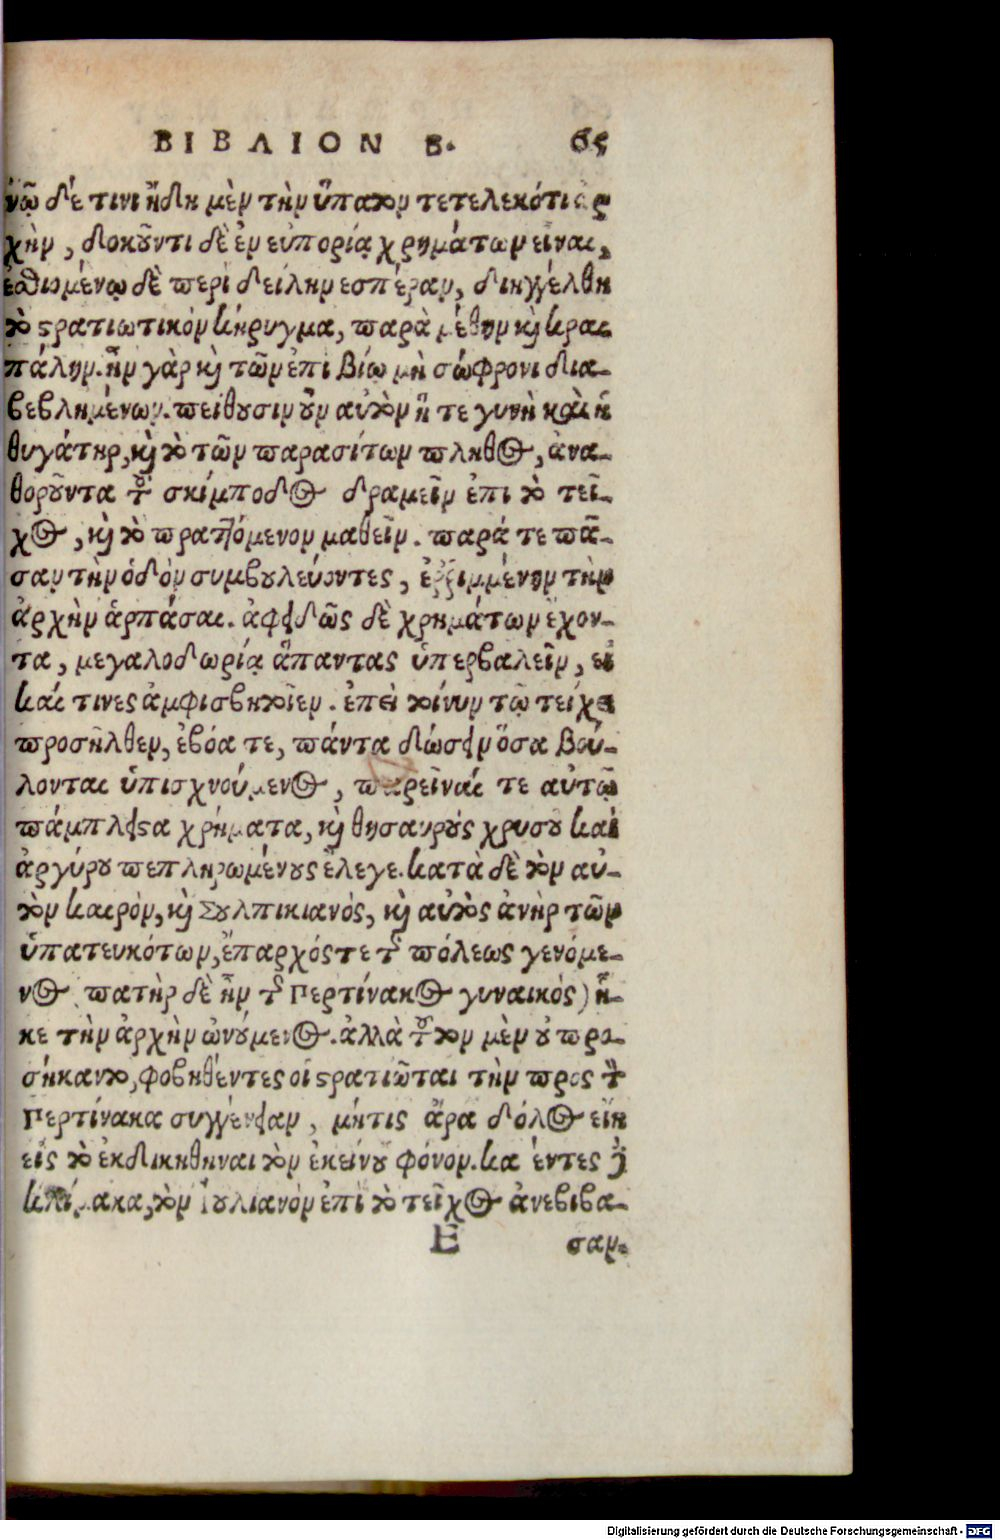 ΒΙΒΛΙΟΝ Β. 65
νῷ δέ τινι ἤδη μὲν τὴν ὕπατον τετελεκότι ἀρ
χὴν, δοκοῦντι δὲ ἐν εὐπορίᾳ χρημάτων εἶναι,
ἑσθιωμένῳ δὲ περὶ δείλην εσπέραν, διηγγέλθη
τὸ στρατιωτικὸν κήρυγμα, παρὰ μέθην καὶ κραι
πάλην. ἦν γὰρ καὶ τῶν ἐπι βίῳ μὴ σώφρονι δια-
βεβλημένων. πείθουσιν οὖν αὐτὸν ἥ τε γυνὴ καὶ ἡ
θυγάτηρ, καὶ τὸ τῶν παρασίτων πληθος, ἀνα-
θοροῦντα τοῦ σκίμποδος δραμεῖν ἐπι τὸ τεῖ-
χος, καὶ τὸ πραττόμενον μαθεῖν. παρά τε πᾶ-
σαν τὴν ὁδὸν συμβουλεύοντες, ἐῤῥιμμένην τὴν
ἀρχὴν ἁρπάσαι. ἀφειδῶς δὲ χρημάτων ἔχον-
τα, μεγαλοδωρίᾳ ἅπαντας ὑπερβαλεῖν, εἰ
καί τινες ἀμφισβητοῖεν. ἐπεὶ τοίνυν τῷ τείχει
προσῆλθεν, ἐβόα τε, πάντα δώσειν ὅσα βού-
λονται ὑπισχνούμενος, παρεῖναί τε αὐτῷ
πάμπλειστα χρήματα, καὶ θησαυροὺς χρυσου καὶ
ἀργύρου πεπληρωμένους ἔλεγε. κατὰ δὲ τὸν αὐ-
τὸν καιρὸν, καὶ Σουλπικιανὸς, καὶ αὐτὸς ἀνὴρ τῶν
ὑπατευκότων, ἔπαρχός τε τῆς πόλεως γενόμε-
νος πατὴρ δὲ ἦν τῆς Περτίνακος γυναικὸς) ἧ-
κε τὴν ἀρχὴν ὠνούμενος. ἀλλὰ τοῦτον μὲν οὐ προ-
σήκαντο, φοβηθέντες οἱ στρατιῶται τὴν προς τὸν
Περτίνακα συγγένειαν, μήτις ἄρα δόλος εἴη
εἰς τὸ ἐκδικηθηναι τὸν ἐκείνου φόνον. κα έντες δὲ
κλίμακα, τὸν Ἰουλιανὸν ἐπὶ τὸ τεῖχος ἀνεβιβα-
E σαν.
Digitalisierung gefördert durch die Deutsche Forschungsgemeinschaft - DFG